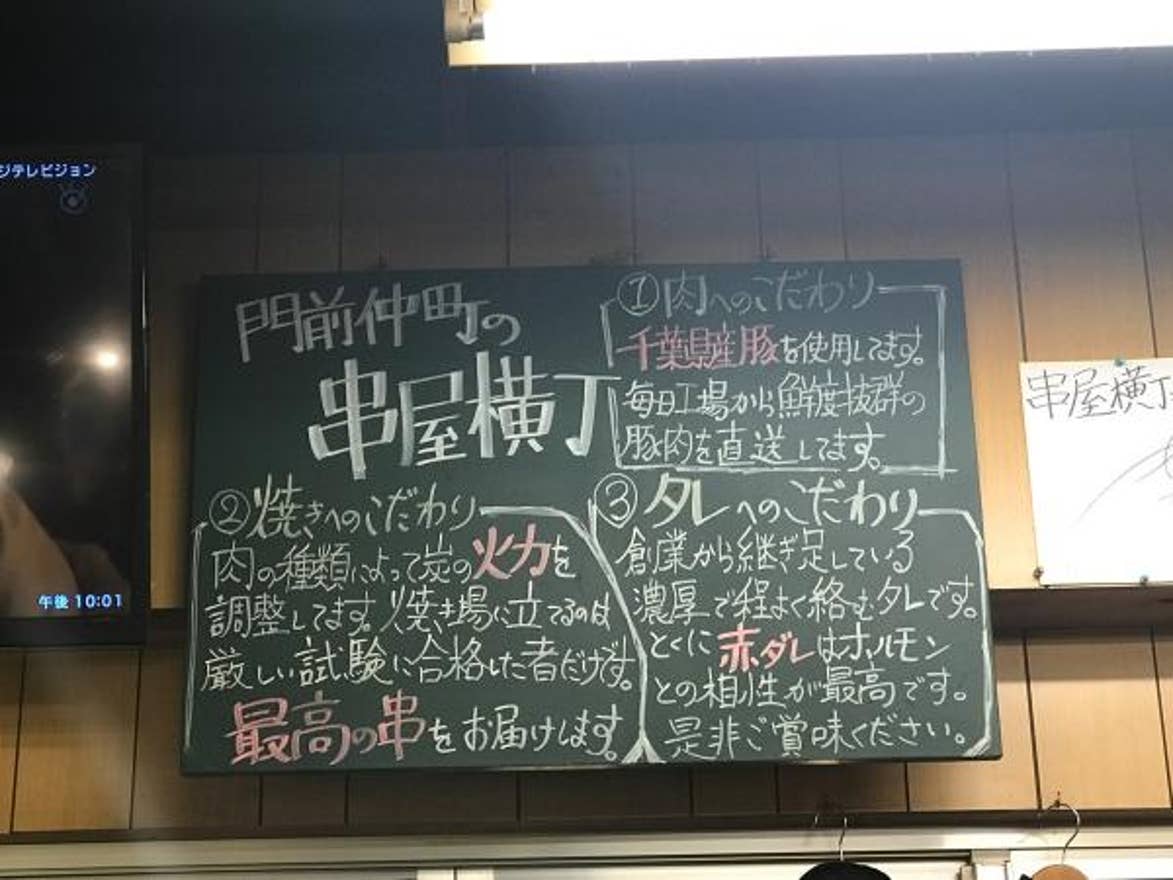 ジテレビジョン
午後 10:01
門前仲町の
串屋横丁
①肉へのこだわり
千葉県産豚を使用してます。
毎日工場から鮮度抜群の
豚肉を直送してます。
②焼きへのこだわり
肉の種類によって炭の火力を
調整してます。焼き場に立てるのは
厳しい試験に合格した者だけです。
最高の串をお届けします。
③タレへのこだわり
創業から継ぎ足している
濃厚で程よく絡むタレです。
とくに赤ダレはホルモン
との相性が最高です。
是非ご賞味ください。
串屋横丁